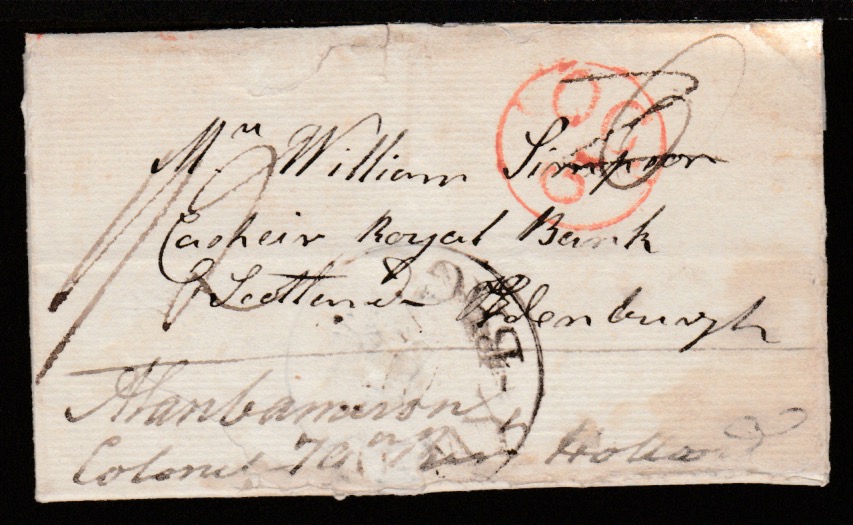 Mr. William Simpson
Casheir Royal Bank
of Scotland Edenburgh
Alan Cameron
Colonel 79th Regt Holland